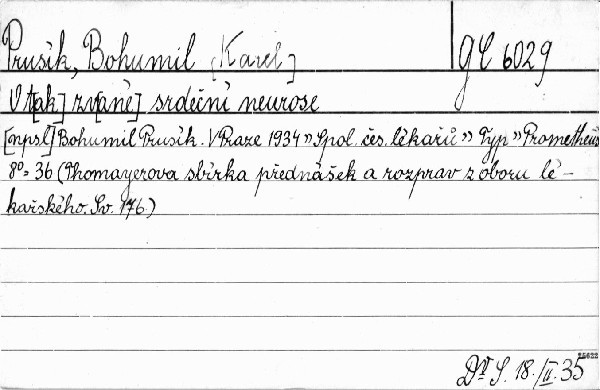 Prusík, Bohumil [Karel]
GC 6029
O t[ak] zv[ané] srdeční neurose
[nps.] Bohumil Prusík. V Praze 1934 » Spol. čes. lékařů » Typ » Prometheus
8° = 36 (Thomayerova sbírka přednášek a rozprav z oboru lé-
kařského. Sv. 176.)
25622
Dr S. 18./II.35